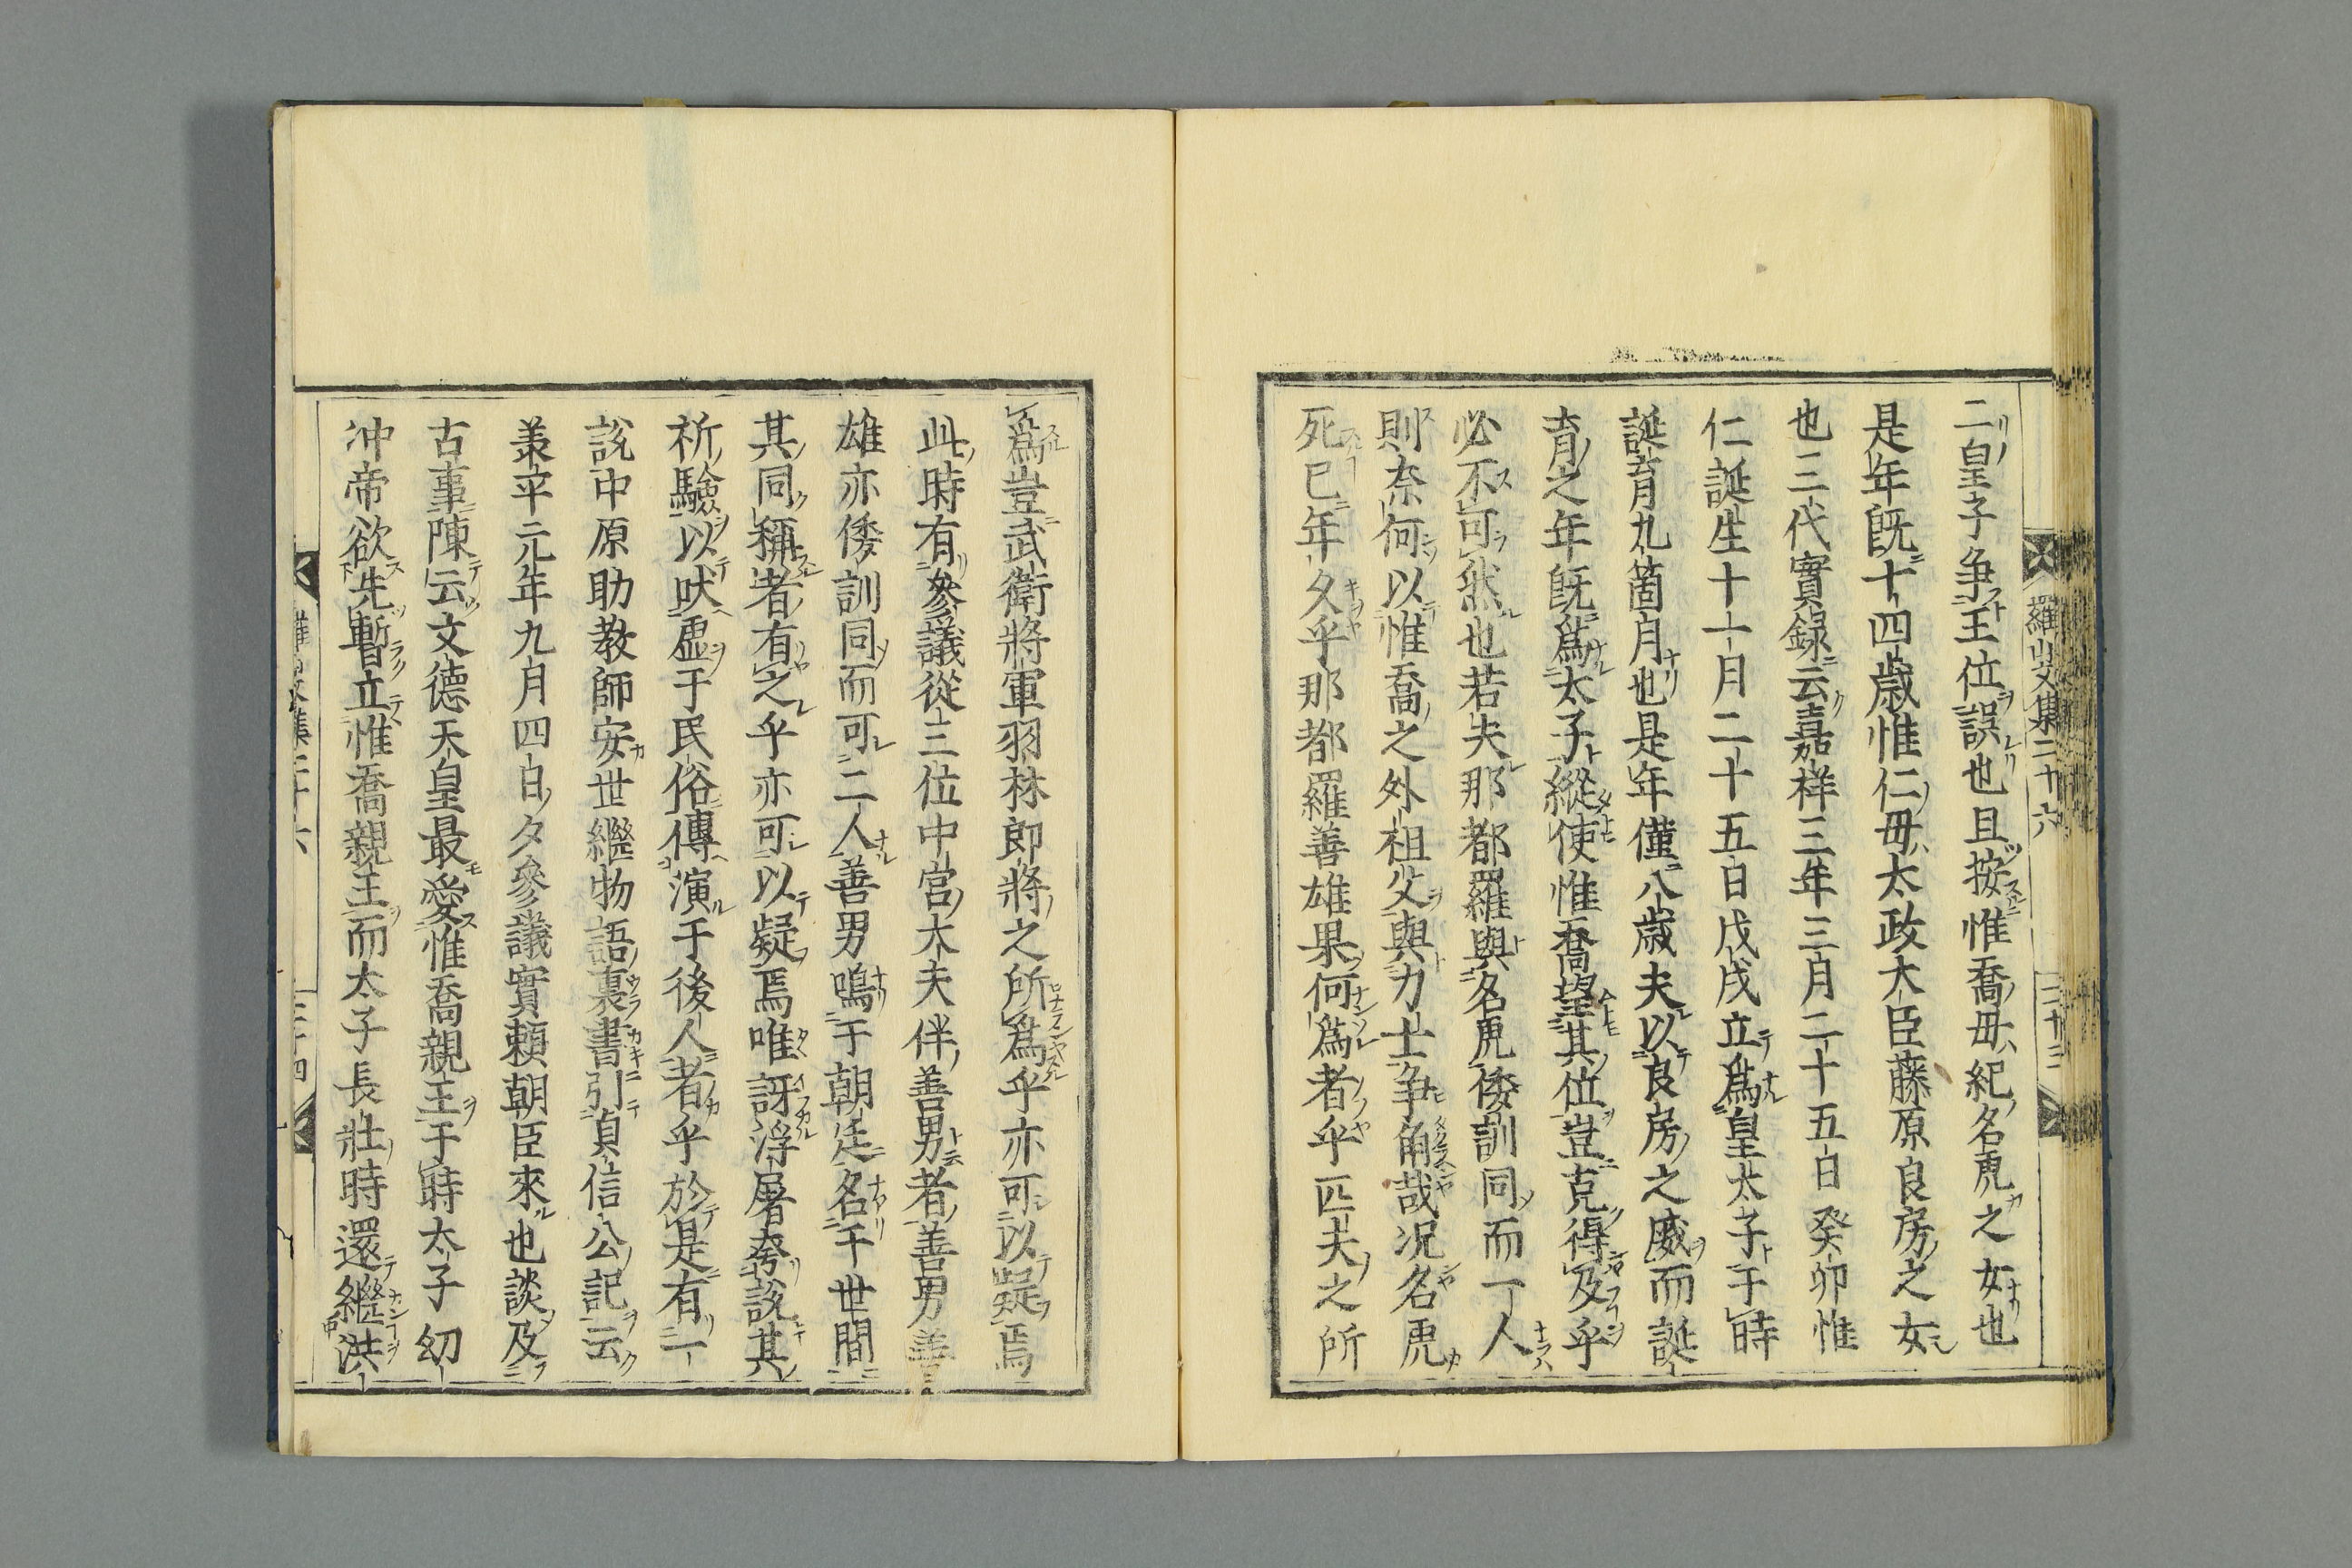 羅山文集二十六
二十三
二皇子争王位誤也且按惟喬母紀名虎之女也
是年既十四歳惟仁母太政大臣藤原良房之女
也三代實録云嘉祥三年三月二十五日癸卯惟
仁誕生十一月二十五日戊戌立爲皇太子于時
誕育九箇月也是年僅八歳夫以良房之威而誕
育之年既爲太子縱使惟喬望其位豈克得及乎
必不可然也若夫那都羅與名虎倭訓同而一人
則奈何以惟喬之外祖父與力士争角哉况名虎
死已年久乎那都羅善雄果何爲者乎匹夫之所
爲豈武衛將軍羽林郎將之所爲乎亦可以疑焉
此時有參議從三位中宮大夫伴善男者善男善
雄亦倭訓同而可二人善男鳴于朝廷名于世間
其同稱者有之乎亦可以疑焉唯訝浮屠夸説其
祈驗以吠虚于民俗傳演于後人者乎於是有一
説中原助教師安世繼物語裏書引貞信公記云
羕平元年九月四日夕參議實頼朝臣來也談及
古事陳云文徳天皇最愛惟喬親王于時太子幼
冲帝欲先暫立惟喬親王而太子長壯時還繼洪